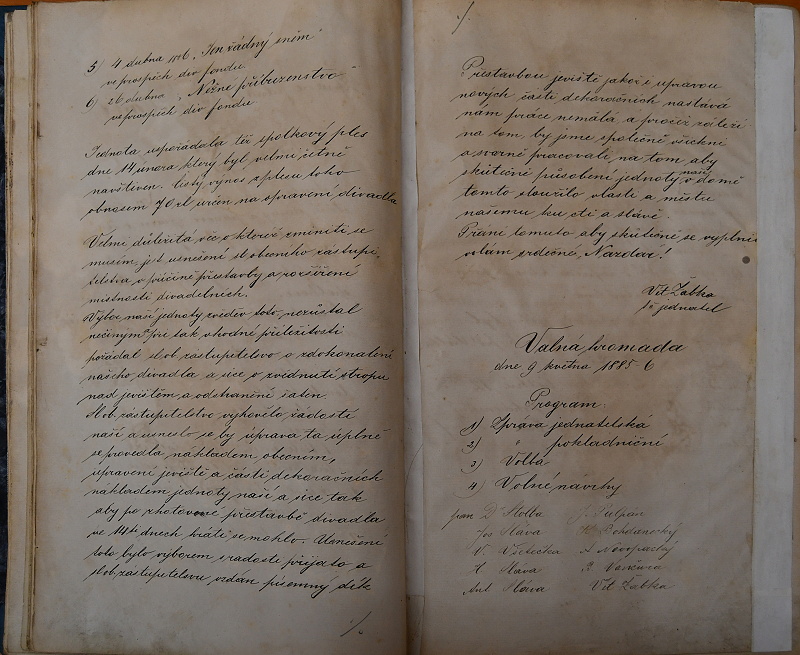 5) 4 dubna 1886 „Ten řádný sním"
ve prospěch div fondu
6) 26 dubna „Něžné příbuzenstvo"
ve prospěch div fondu
Jednota uspořádala též spolkový ples
dne 14 února který byl velmi četně
navštíven. Čistý výnos z plesu toho
obnosem 70 zl určen na spravení divadla
Velmi důležitá věc o kteréž zmíniti se
musím jest usnešení sl obecního zastupi-
telstva o příčině přestavby a rozšíření
místností divadelních.
Výbor naší jednoty zvěděv toto, nezůstal
nečinným při tak vhodné příležitosti
požádal slob zastupitelstvo o zdokonalení
našeho divadla a sice o zvednutí stropu
nad jevištěm a odstranění šaten.
Slob. zastupitelstvo vyhovělo žádosti
naší a uneslo se by úprava ta úplně
se provedla nákladem obecním,
upravení jeviště a části dekoračních
nákladem jednoty naší a sice tak
aby po zhotovené přestavbě divadla
ve 14ti dnech hráti se mohlo. Usnešení
toto bylo výborem s radostí přijato a
slob. zastupitelstvu vzdán písemný dík
./.
./.
Přestavbou jeviště jakož i úpravou
nových částí dekoračních nastává
nám práce nemalá a pročež záleží
na tom, by jsme společně všickni
a svorně pracovali, na tom aby
skutečné působení jednoty naší v domě
tomto sloužilo vlasti a městu
našemu ku cti a slávě.
Přání tomuto aby skutečně se vyplnilo
volám srdečné „Nazdar!
Vít Žabka
jednatel
Valna hromada
dne 9 května 1885 6
Program:
1) Správa jednatelská
2) " pokladniční
3) Volba
4) Volné návrhy
pan Dr Stolba J. Tulpan
Jos Sláva Bohdanecký
V. Všetečka A Novopacký
Sláva P. Vančura
Ant Sláva Vít Žabka